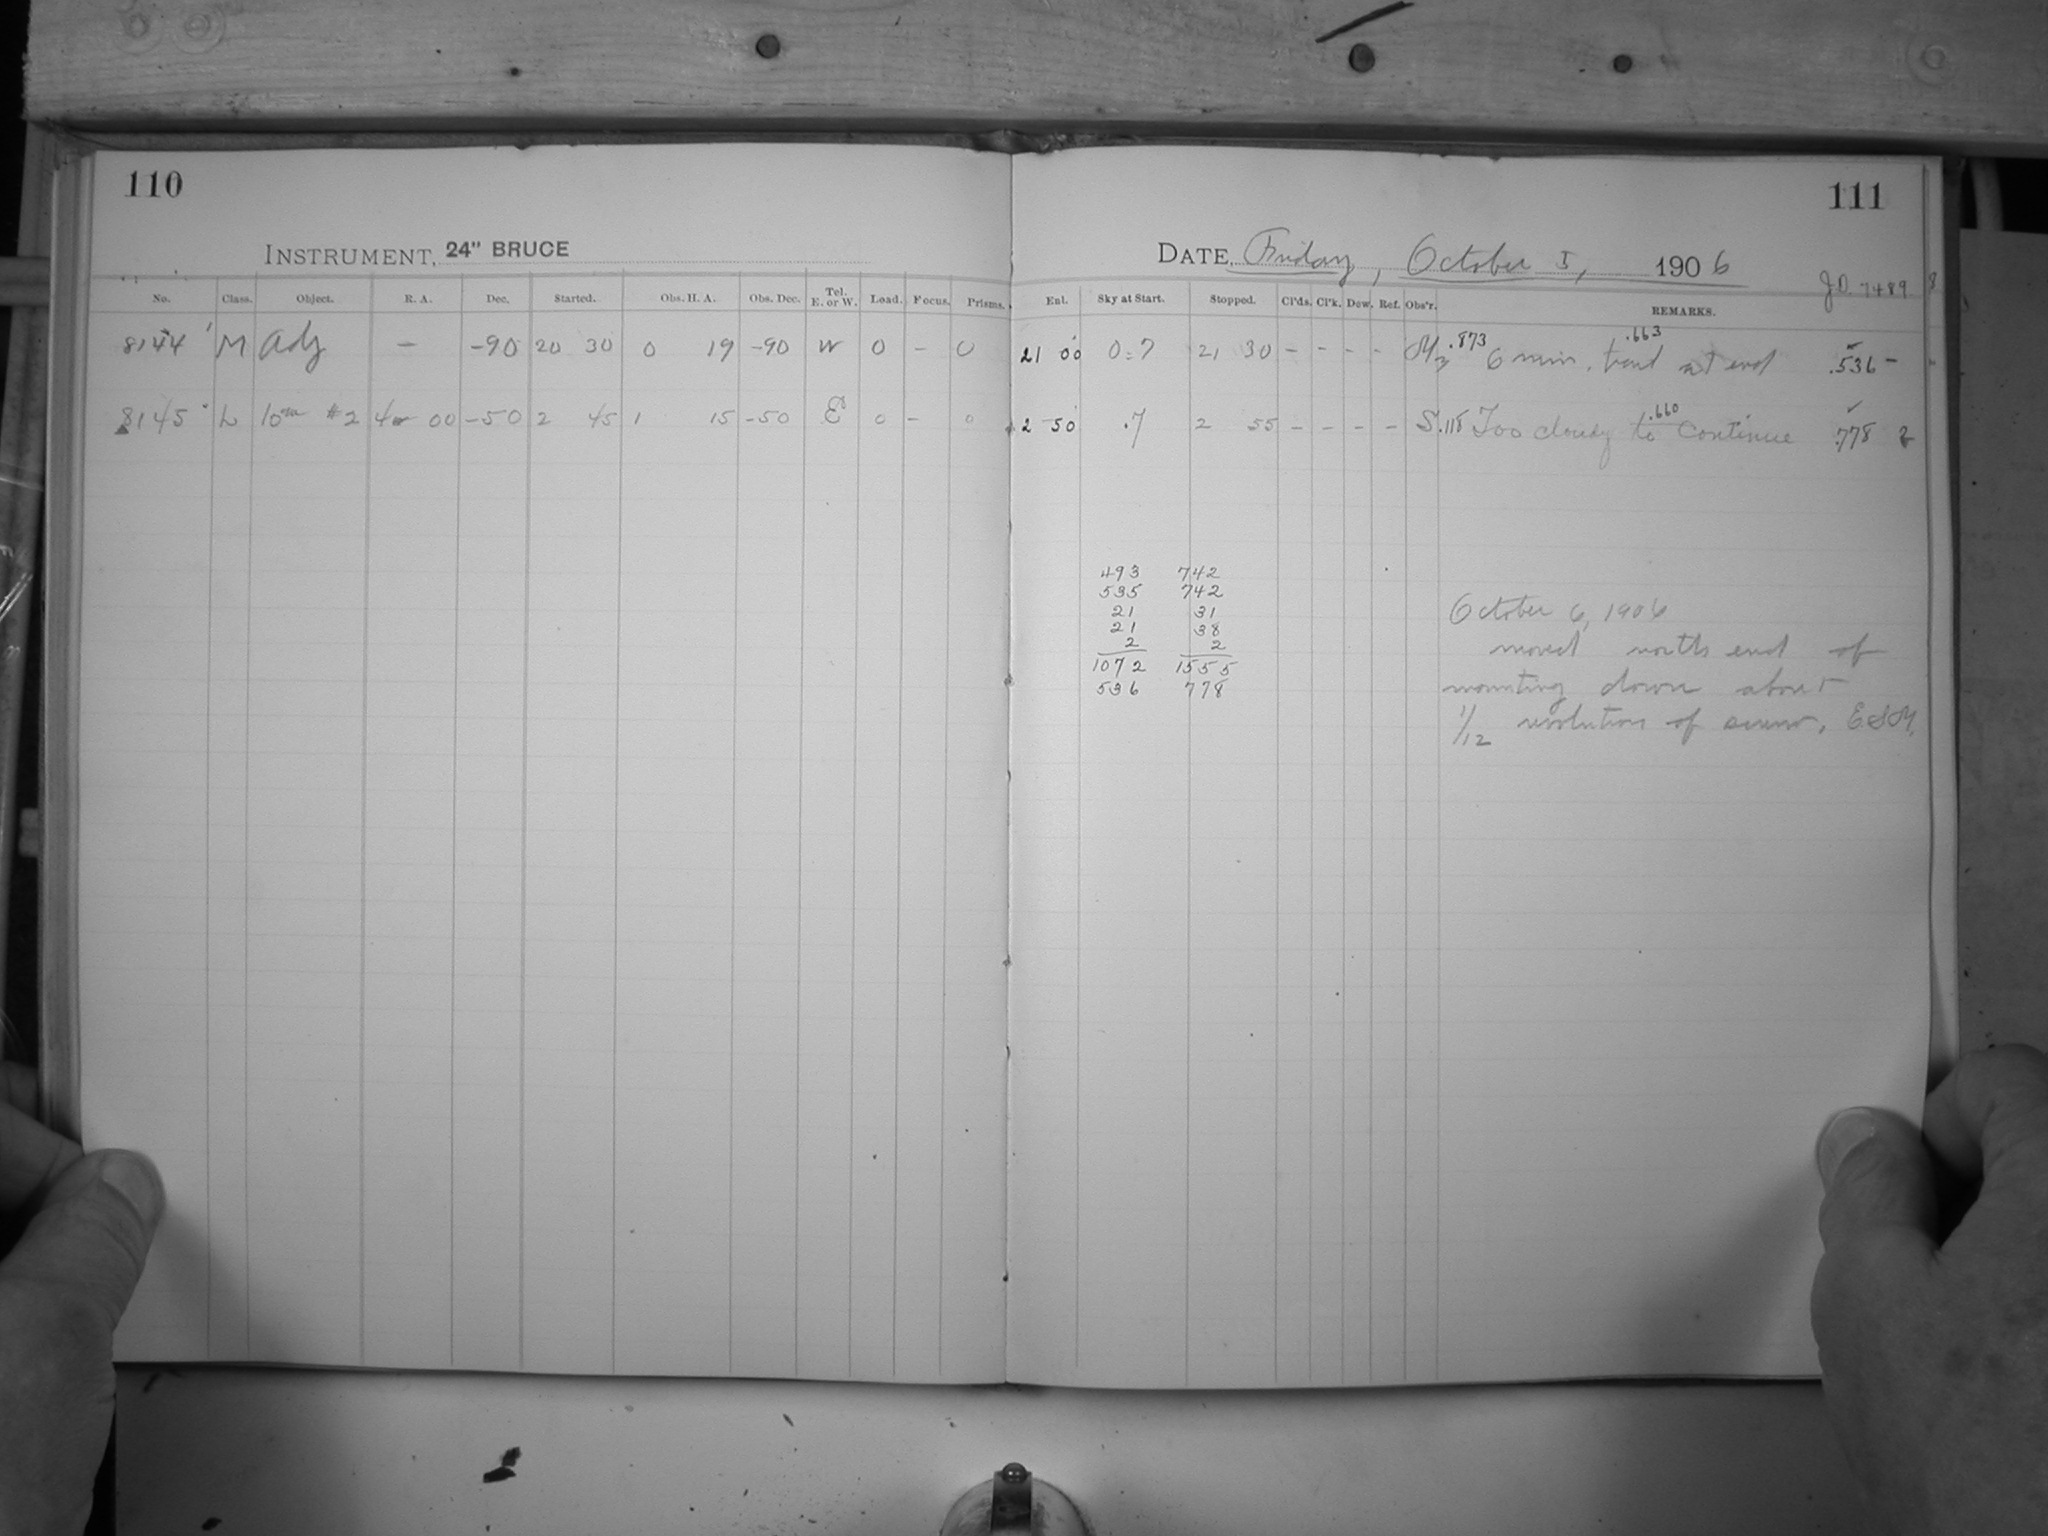 110
INSTRUMENT, 24" BRUCE
No. Class. Object. R. A. Dec. Started. Obs. H. A. Obs. Dec. Tel. E. or W. Load. Focus. Prisms.
8144 M Adj — -90 20 30 0 19 -90 W 0 - 0
8145 L 10m #2 4 00 -50 2 45 1 15 -50 E 0 - 0
111
DATE, Friday, October 5, 1906
J.D. 7489
Ent. Sky at Start. Stopped. Cl'ds. Cl'k. Dew. Ref. Obs'r. REMARKS.
21 00 0.7 21 30 - - - - .873 6 min. trail at end .663 .536 -
2 50 .7 2 55 - - - - S .118 Too cloudy to continue .660 .778 2
493 742
535 742
21 31
21 38
2 2
1072 1555
536 778
October 6, 1906
moved north end of
mounting down about
1/12 revolution of screw. ESM.